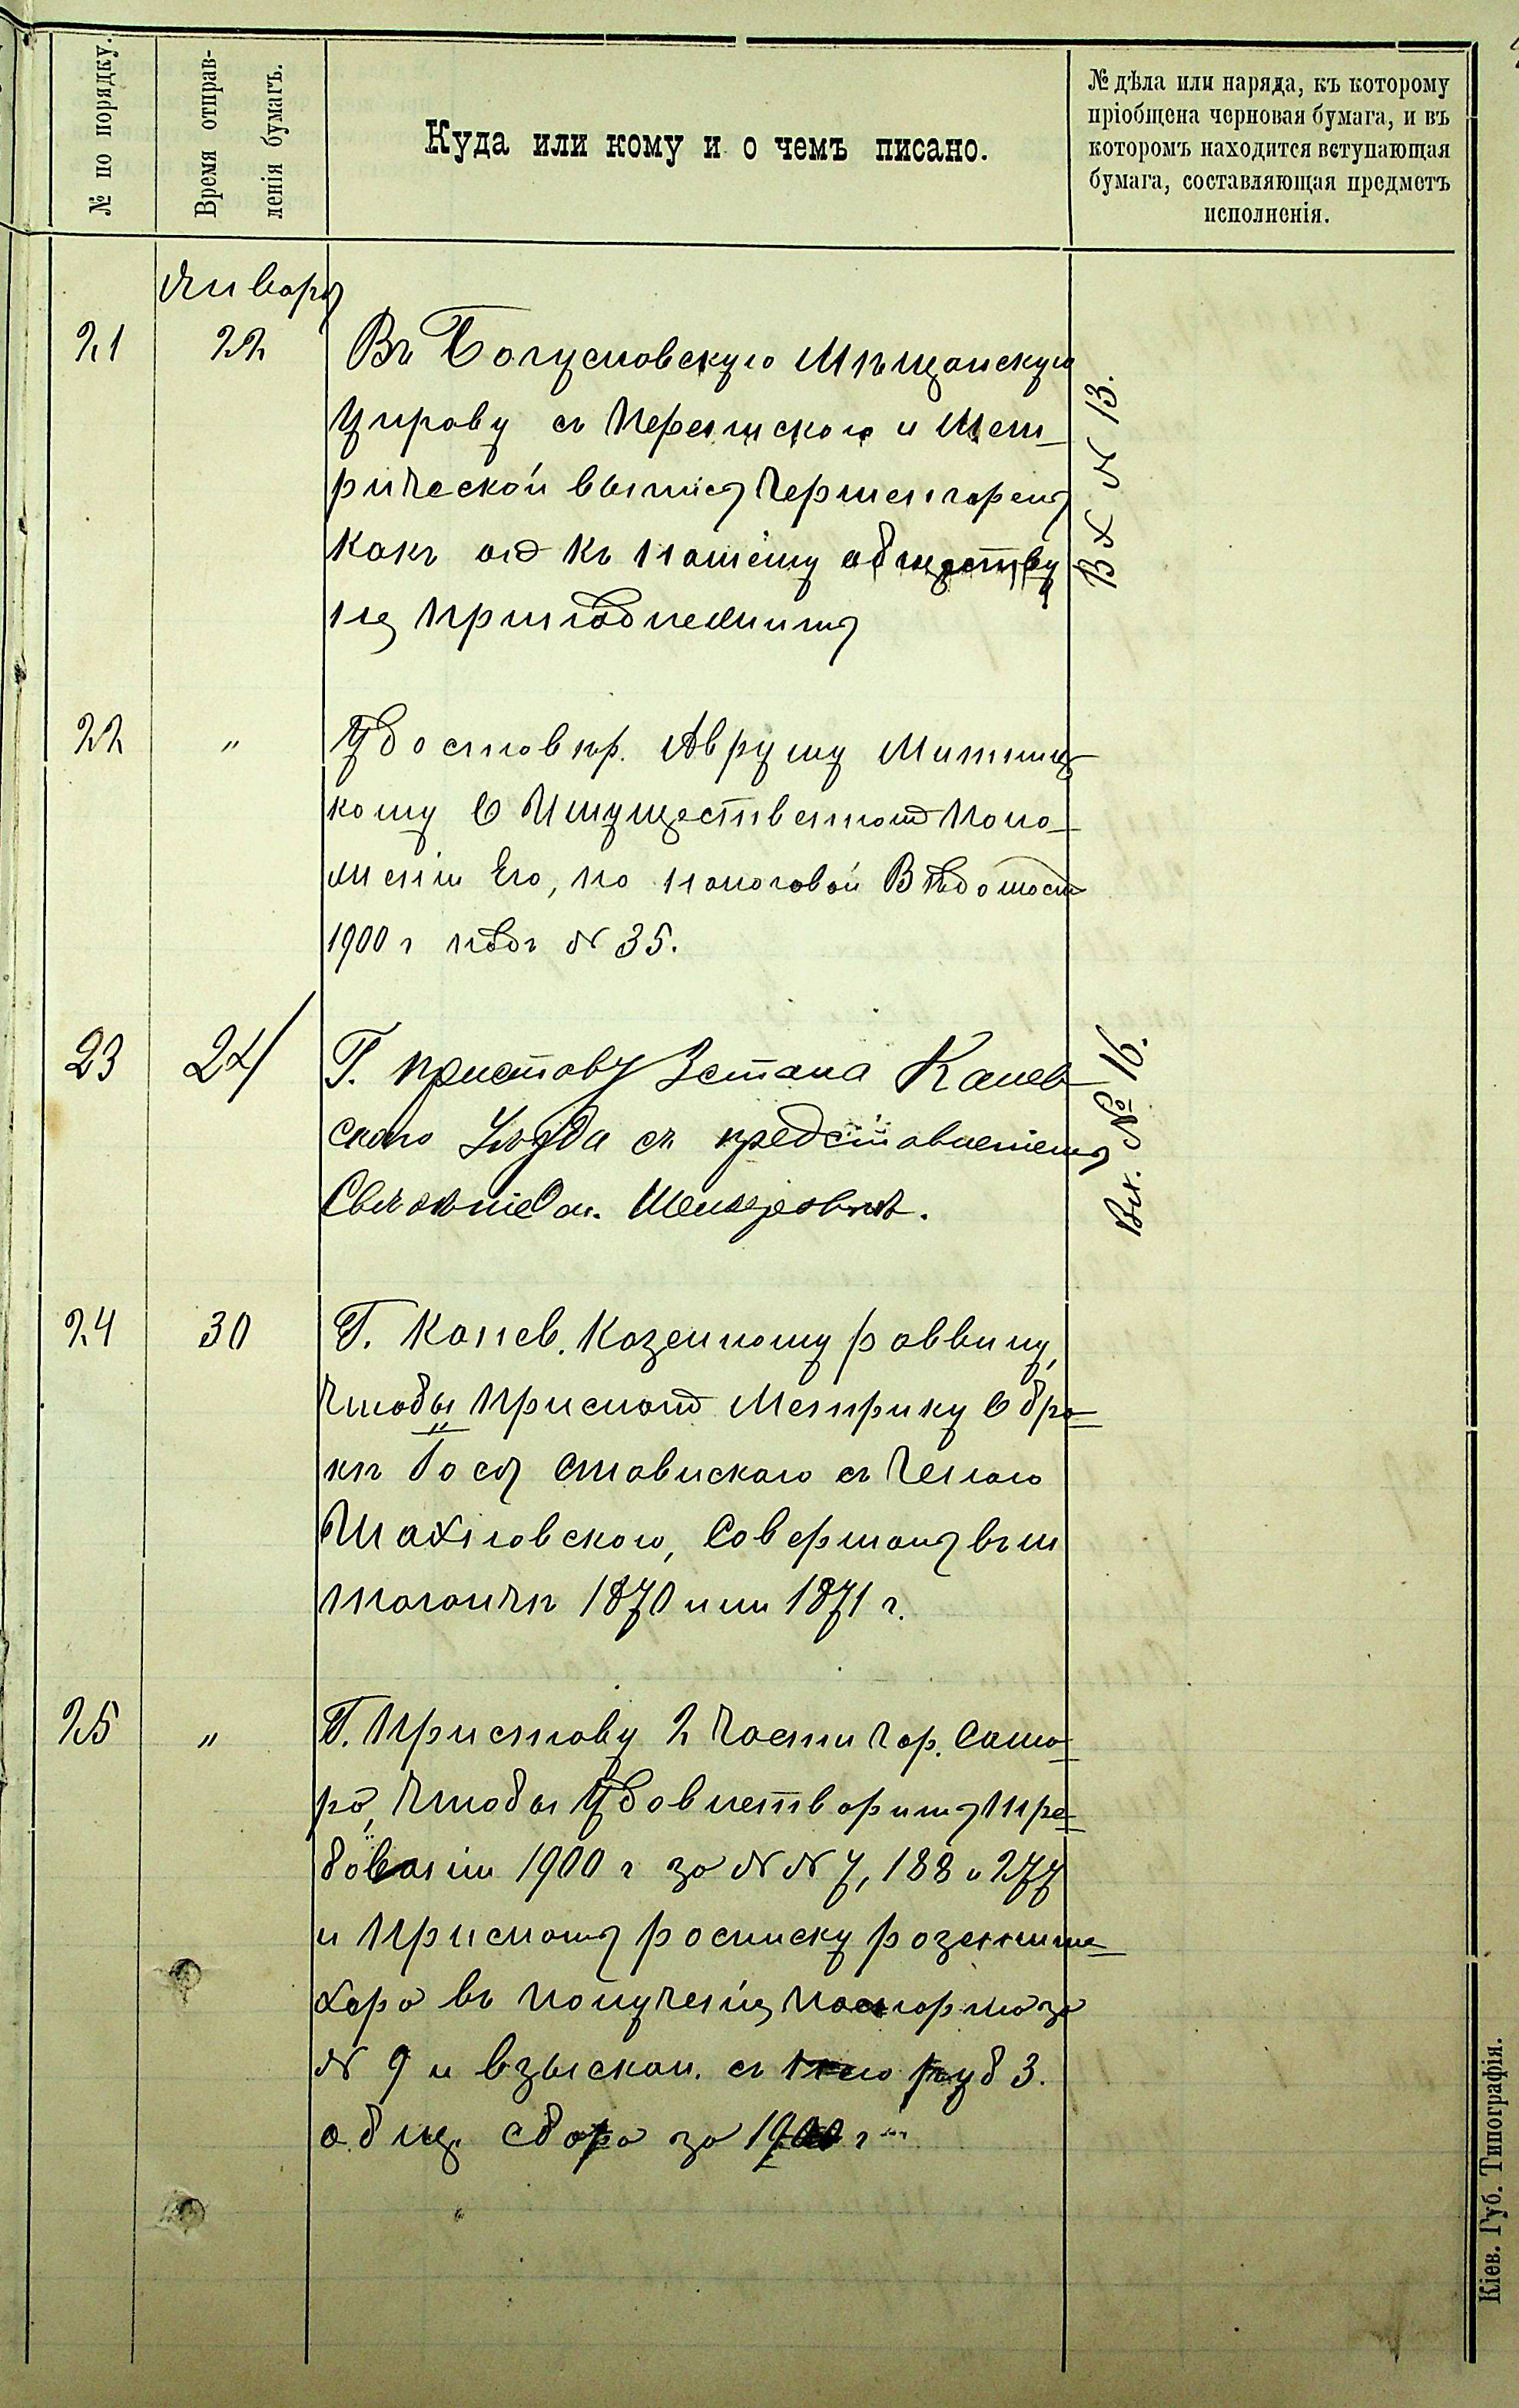 № по порядку.
Время отправ-
ленія бумагъ.
Куда или кому и о чемъ писано.
№ дѣла или наряда, къ которому
пріобщена черновая бумага, и въ
которомъ находится вступающая
бумага, составляющая предметъ
исполненія.
Января
21 22 Въ Богуславскую Мѣщанскую
Управу съ Перепискою и Мет-
рической выписи
какъ къ нашему обществу
не принадлежитъ
Вх № 13.
22 " Удостовѣр. Авруму
кому О Имущественном Поло-
женіи Его, по налоговой Вѣдомости
1900 г подъ № 35.
23 24 Г. приставу 3 стана Канев
скаго Уѣзда съ представленіемъ
Вх. № 16.
24 30 Г. Канев. Казенному раввину,
чтобы прислалъ Метрику О бра-
кѣ Іося Ставискаго съ
Махновскаго, Совершон въ м
1870 или 1871 г.
25 " Г. Приставу 2 части гор. Сама-
ра, чтобы Удовлетворить Тре-
бованіи 1900 г за №№ 7, 188 и 277
и Прислать росписку
въ полученіи паспорта за
№ 9 и взыскан. съ него руб 3.
общ. сбора за г
Кіев. Губ. Типографія.